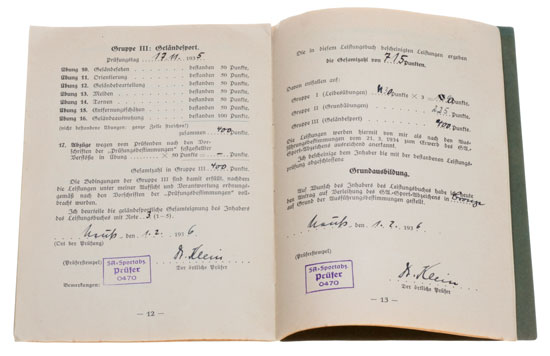 Gruppe III: Geländesport.
Prüfungstag 17.11. 1935
Übung 10. Geländesehen bestanden 50 Punkte,
Übung 11. Orientierung bestanden 50 Punkte,
Übung 12. Geländebeurteilung bestanden 50 Punkte,
Übung 13. Melden bestanden 50 Punkte,
Übung 14. Tarnen bestanden 50 Punkte,
Übung 15. Entfernungsschätzen bestanden 50 Punkte,
Übung 16. Geländeausnutzung bestanden Punkte,
(nicht bestandene Übungen: ganze Zeile streichen!)
zusammen 400 Punkte.
17. Abzüge wegen vom Prüfenden nach den Vor-
schriften der „Prüfungsbestimmungen" festgestellter
Verstöße in Übung × 50 Punkte = – Punkte.
Gesamtzahl in Gruppe III 400 Punkte.
Die Bedingungen der Gruppe III sind damit erfüllt, nachdem
die Leistungen unter meiner Aufsicht und Verantwortung ordnungs-
gemäß nach den Vorschriften der „Prüfungsbestimmungen" bewertet
wurden.
Ich beurteile die geländesportliche Gesamteignung des Inhabers
des Leistungsbuches mit Note 3 (1–5).
, den 1. 2. 1936
(Ort der Prüfung)
Dr. Klein
(Prüferstempel) Der örtliche Prüfer
SA-Sportabz.
Prüfer
0470
Bemerkungen:
— 12 —
Die in diesem Leistungsbuch bescheinigten Leistungen ergeben
die Gesamtzahl von 715 Punkten.
Davon entfallen auf:
Gruppe I (Leibesübungen) Punkte × 3 = Punkte
Gruppe II (Grundübungen) 225 Punkte
Gruppe III (Geländesport) 400 Punkte.
Die Leistungen werden hiermit von mir als nach den Aus-
Ich bescheinige dem Inhaber die mit der bestandenen Leistungs-
prüfung abgeschlossene
Grundausbildung.
Auf Wunsch des Inhabers des Leistungsbuches habe ich heute
den Antrag auf Verleihung des SA-Sport-Abzeichens in Bronze
auf Grund der Ausführungsbestimmungen gestellt.
, den 1. 2. 1936
(Prüferstempel)
Dr. Klein
Der örtliche Prüfer
SA-Sportabz.
Prüfer
0470
— 13 —